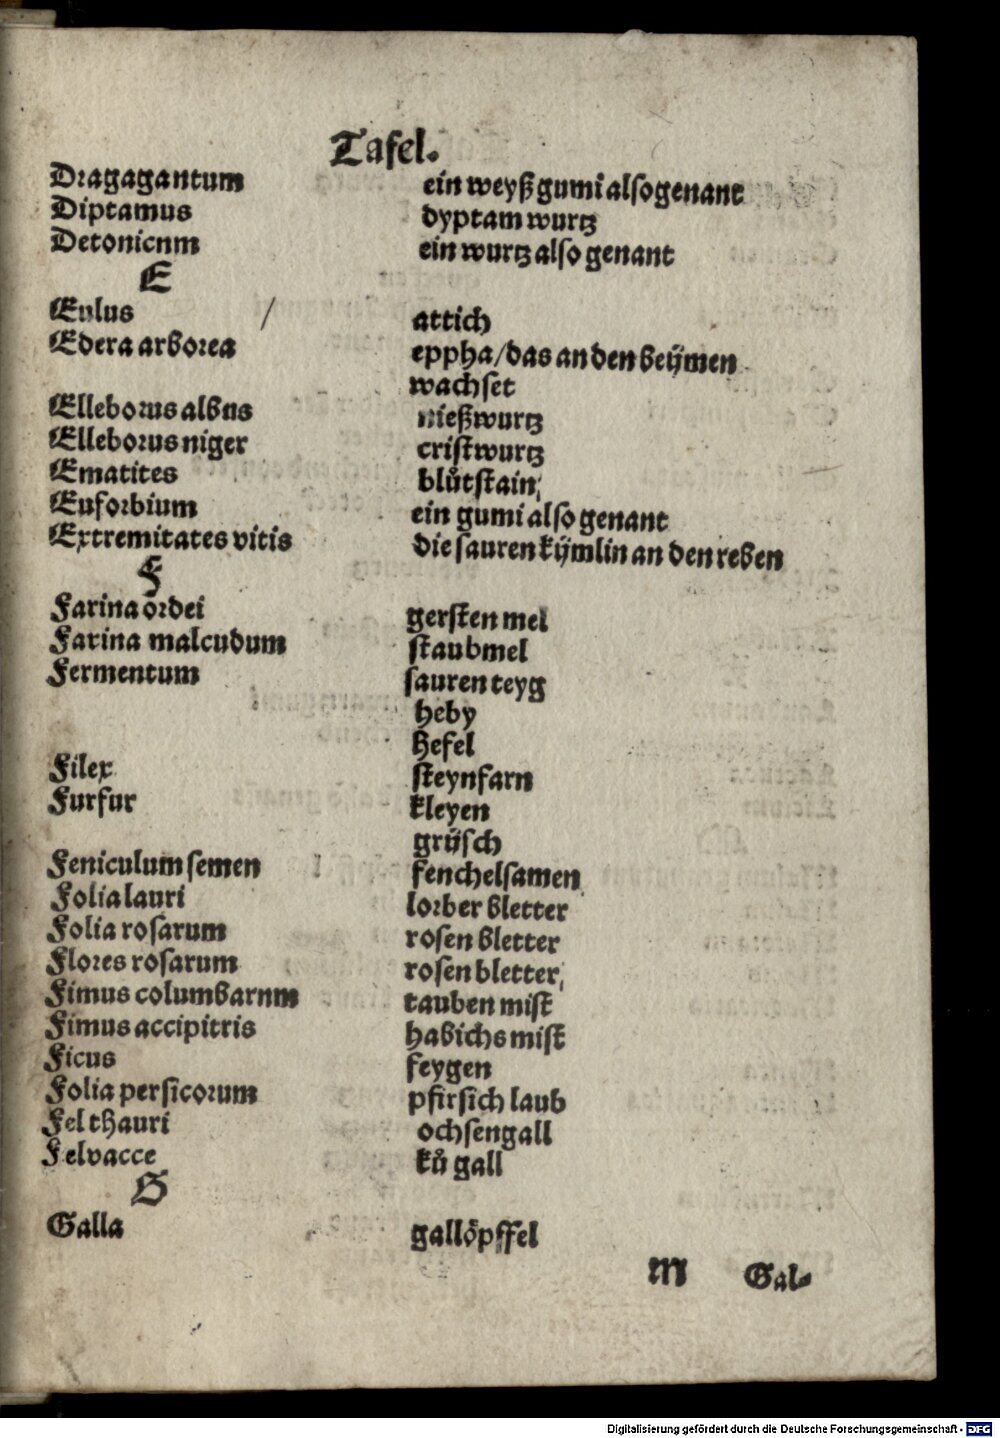 Tafel.
Dragagantum ein weyß gumi also genant
Diptamus dyptam wurtz
Detonicnm ein wurtz also genant
E
Eulus attich
Edera arborea eppha/das an den beÿmen
wachset
Elleborus albus nießwurtz
Elleborus niger cristwurtz
Ematites blůtstain
Euforbium ein gumi also genant
Extremitates vitis die sauren kÿmlin an den reben
F
Farina ordei gersten mel
Farina malcudum staubmel
Fermentum sauren teyg
heby
Hefel
Filex steynfarn
Furfur kleyen
grüsch
Feniculum semen fenchelsamen
Folia lauri lorber bletter
Folia rosarum rosen bletter
Flores rosarum rosen bletter
Fimus columbarnm tauben mist
Fimus accipitris habichs mist
Ficus feygen
Folia persicorum pfirsich laub
Fel thauri ochsengall
Fel vacce ků gall
G
Galla gallöpffel
M Gal-
Digitalisierung gefördert durch die Deutsche Forschungsgemeinschaft - DFG